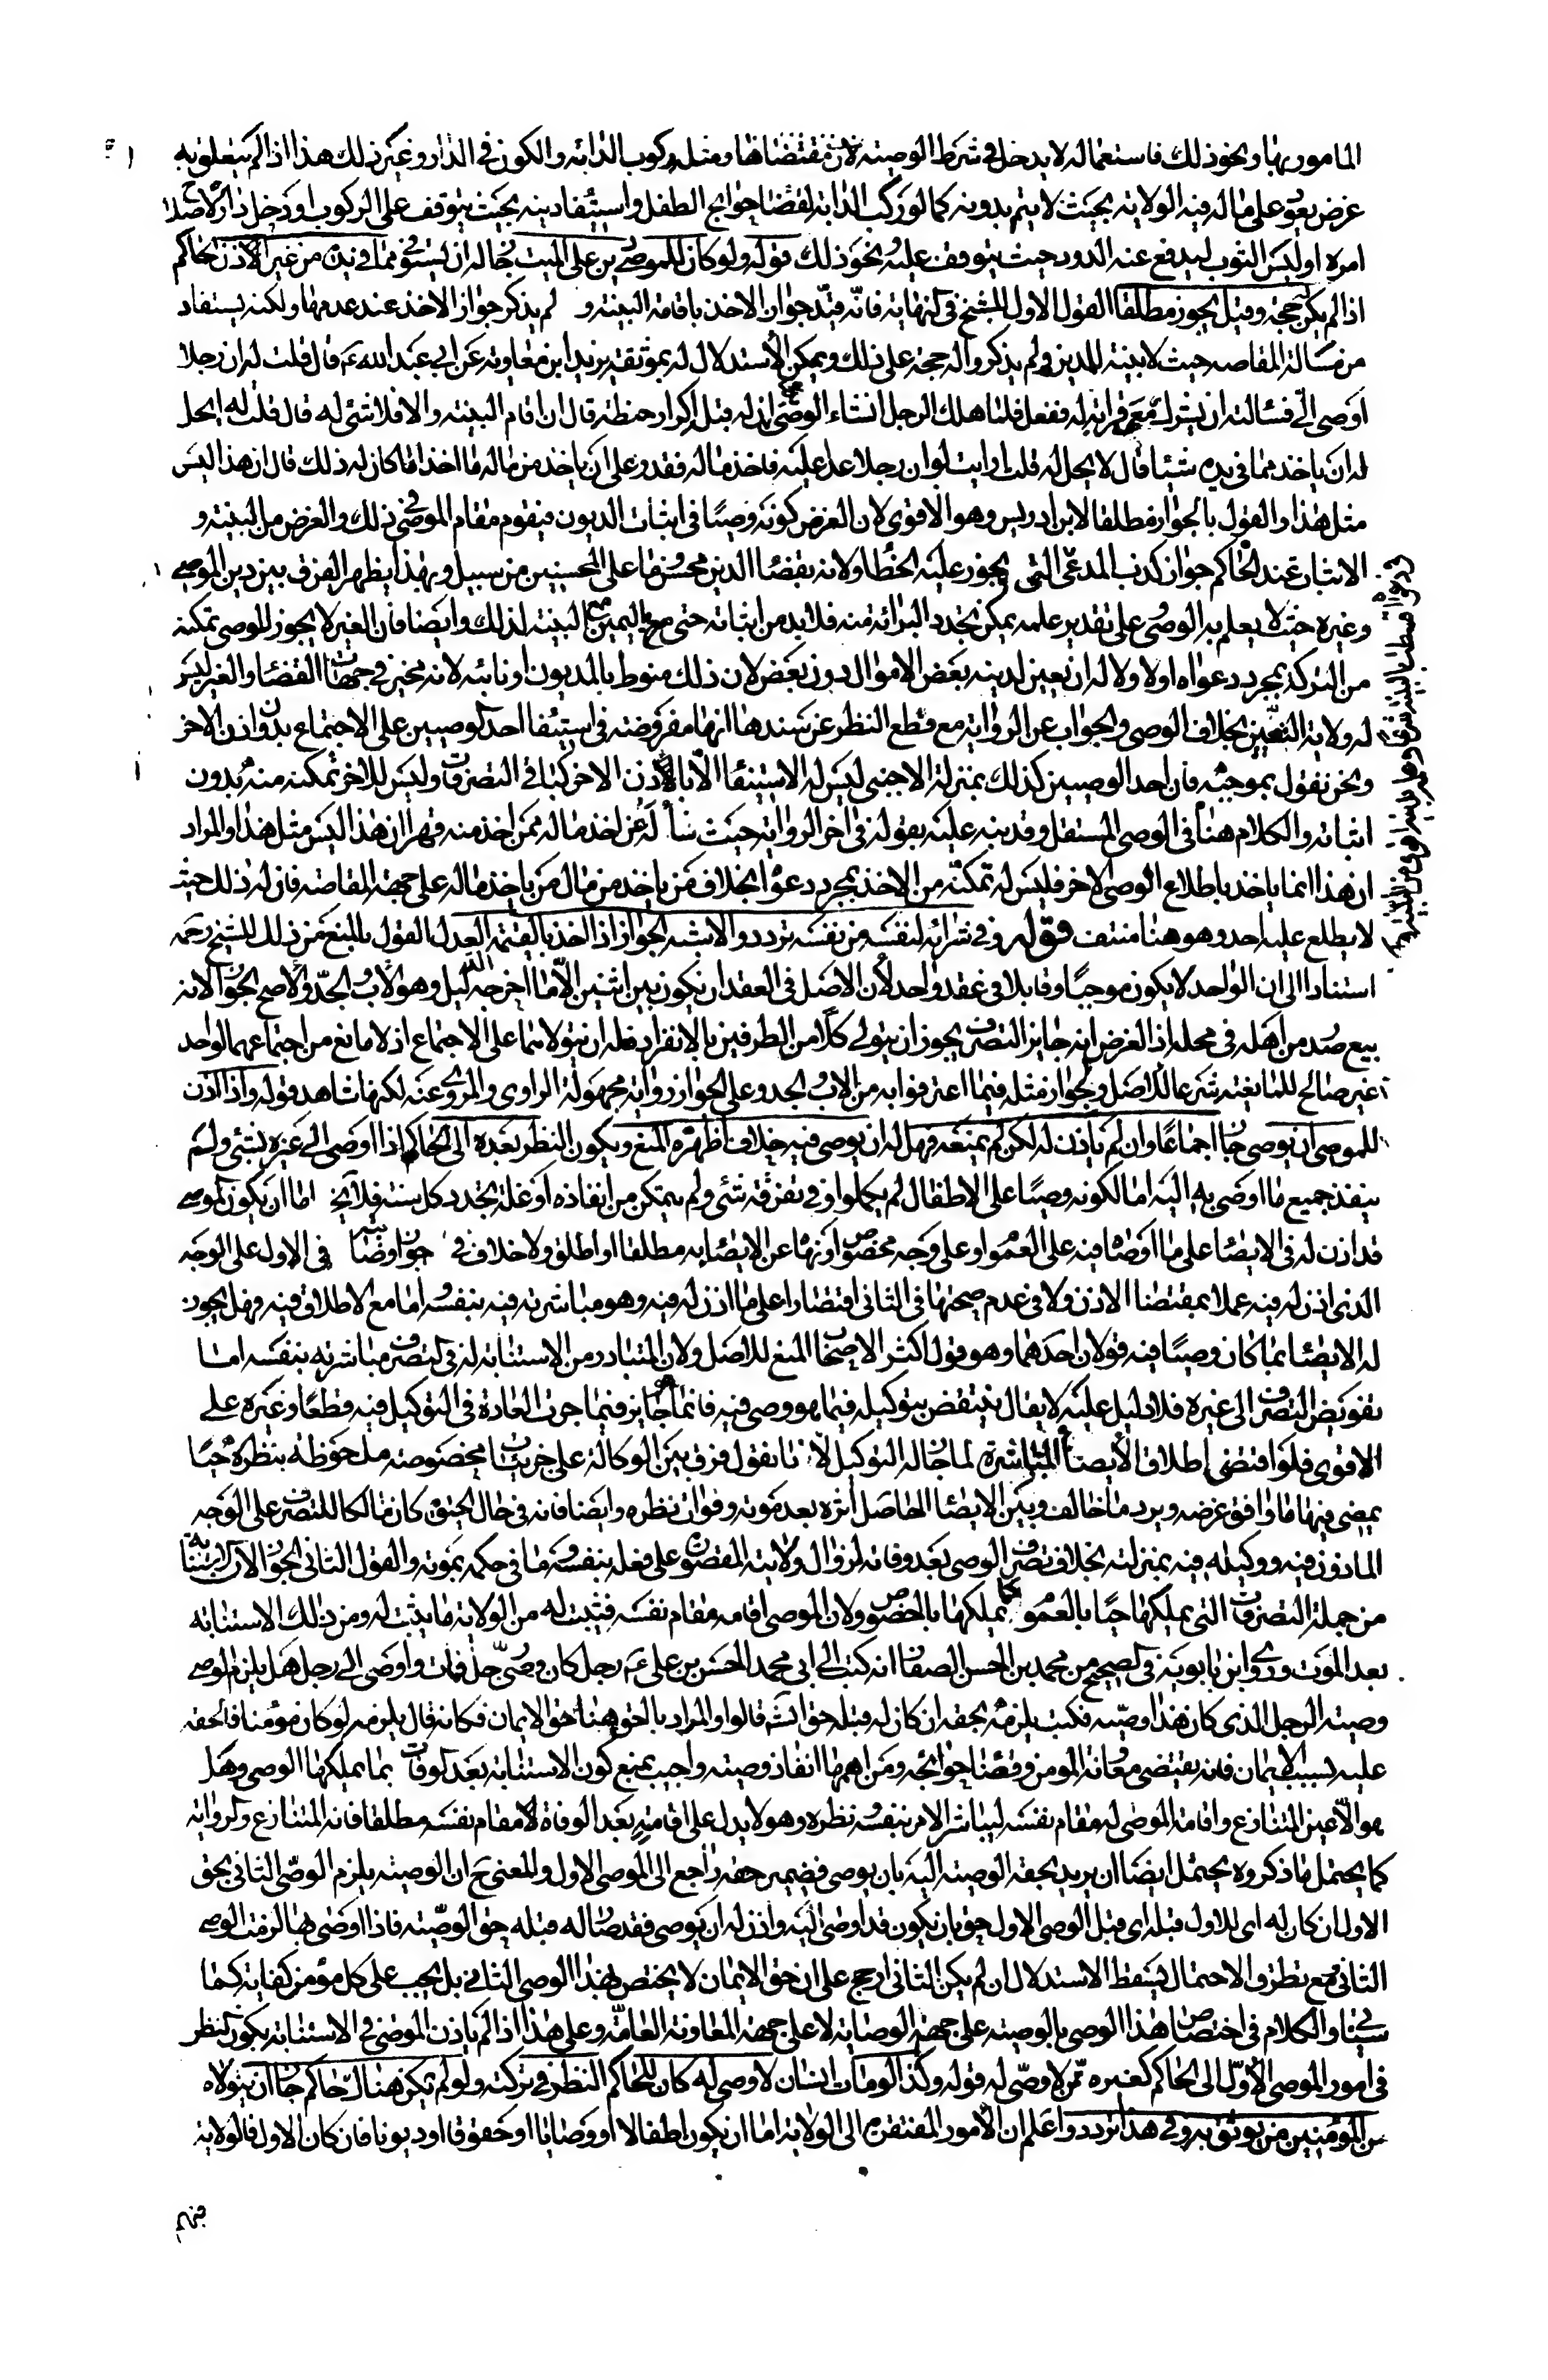 المامور بها ونحو ذلك فاستعماله لا يدخل في شرط الوصية لان مقتضاها ومثله ركوب الدابه والكون في الدار وغير ذلك هذا اذا لم يتعلق به
غرض يعود على ماله فيه الولاية بحيث لا يتم بدونه كما لو ركب الدابة لقضاء حوايج الطفل واستيفاء دينه بحيث يتوقف على الركوب او دخل داره لاصلاح
امره او لبس الثوب ليدفع عنه الدود حيث يتوقف عليه ونحو ذلك قوله ولو كان للموصى دين على الميت جاز له ان يستوفى مما في يده من غير اذن الحاكم
اذا لم يكن حجة وقيل يجوز مطلقا القول الاول للشيخ في النهاية فانه قيد جواز الاخذ باقامة البينة و لم يذكر جواز الاخذ عند عدمها ولكنه يستفاد
من مسالة المقاصه حيث لا بينة للمدين ولم يذكروا له حجة على ذلك ويمكن الاستدلال له بموثقة بريد ابن معاوية عن ابي عبد الله ع قال قلت له ان رجلا
اوصى الي فسالته ان يشرك معى ذا قرابة له ففعل فلما هلك الرجل انشاء الوصى ان له قبله اكرار حنطة قال ان اقام البينة والا فلا شئ له قال قلت له ايحل
له ان ياخذ مما في يده شيئا قال لا يحل له قلت ارايت لو ان رجلا عدا عليه فاخذ ماله فقدر على ان ياخذ من ماله ما اخذ اما كان له ذلك قال ان هذا ليس
مثل هذا والقول بالجواز مطلقا لابن ادريس وهو الاقوى لان الغرض كونه وصيا في اثبات الديون فيقوم مقام الموصى في ذلك والغرض من البينة و
الاثبات عند الحاكم جواز كذب المدعى التى يجوز عليه الخطا ولانه بقضاء الدين محسن وما على المحسنين من سبيل وبهذا يظهر الفرق بين دين الموصى
وغيره حيث لا يعلم به الوصى وعلى تقدير علمه يمكن تجدد البرائة منه فلا بد من اثباته حتى مع اليمين مع البينة لذلك وايضا فان الغير لا يجوز للوصى تمكينه
من التركة بمجرد دعواه اولا ولا له ان يعين لدينه بعض الاموال دون بعض لان ذلك منوط بالمديون او نائبه لانه مخير في جهات القضاء والغير ليس
له ولاية التعيين بخلاف الوصى والجواب عن الرواية مع قطع النظر عن سندها انها مفروضة في استيفاء احد الوصيين على الاجتماع بدون اذن الاخر
ونحن نقول بموجبه فان احد الوصيين كذلك بمنزلة الاجنبى ليس له الاستيفاء الا باذن الاخر كباقى التصرفات وليس للاخر تمكينه منه بدون
اثباته والكلام هنا في الوصى المستقل وقد نبه عليه بقوله في اخر الرواية حيث سأله عن اخذ ماله ممن اخذ منه قهرا ان هذا ليس مثل هذا والمراد
ان هذا انما ياخذ باطلاع الوصى الاخر فليس له تمكينه من الاخذ بمجرد دعواه بخلاف من ياخذ من مال من ياخذ ماله على جهة المقاصه فان له ذلك حيث
لا يطلع عليه احد وهو هنا منتف قوله وفي شرائه لنفسه من نفسه تردد والاشبه الجواز اذا اخذ بالقيمة العدل القول بالمنع من ذلك للشيخ رحمه الله
استنادا الى ان الواحد لا يكون موجبا وقابلا في عقد واحد لان الاصل في العقد ان يكون بين اثنين الا ما اخرجه الدليل وهو الاب والجد والاصح الجواز لانه
بيع صدر من اهله في محله اذ الغرض انه جايز التصرف يجوز ان يتولى كلا من الطرفين بالانفراد فله ان يتولاهما على الاجتماع اذ لا مانع من اجتماعهما لواحد
غير صالح للمانعية شرعا للاصل ولجواز مثله فيما اعترفوا به من الاب والجد وعلى الجواز رواية مجهولة الراوى والمروى عنه لكنها شاهد قوله واذا اذن
للموصى ان يوصى جاز اجماعا وان لم ياذن له لكن لم يمنعه فهل له ان يوصى فيه خلاف اظهره المنع ويكون النظر بعده الى الحاكم اذا اوصى الى غيره بشئ ولم
ينفذ جميع ما اوصى به اليه اما لكونه وصيا على الاطفال لم يكملوا او في تفرقة شئ ولم يتمكن من انفاذه او غلة تتجدد كل سنة فلا يخ اما ان يكون الموصى
قد اذن له في الايصاء على ما اوصاه فيه على العموم او على وجه مخصوص او نهاه عن الايصاء به مطلقا او اطلق ولا خلاف في جواز ايصائه في الاول على الوجه
الذى اذن له فيه عملا بمقتضا الاذن ولا في عدم صحتها في الثانى اقتصارا على ما اذن له فيه وهو مباشرته فيه بنفسه اما مع الاطلاق فيه فهل يجوز
له الايصاء بما كان وصيا فيه قولان احدهما وهو قول اكثر الاصحاب المنع للاصل ولان المتبادر من الاستنابة له في التصرف مباشرته بنفسه اما
تفويض التصرف الى غيره فلا دليل عليه لا يقال ينتقض بتوكيله فيما هو وصى فيه فانه جايز فيما جرت العادة في التوكيل فيه قطعا وغيره على
الاقوى فلو اقتضى اطلاق الايصاء المباشرة لما جاز له التوكيل لانا نقول فرق بين الوكالة على جزئيات مخصوصة ملحوظة بنظره حيا
يمضى فيها ما وافق غرضه ويرد ما خالف وبين الايصاء الحاصل اثره بعد موته وفوات نظره وايضا فانه في حال الحيوة كان مالكا للتصرف على الوجه
الماذون فيه ووكيله فيه بمنزلته بخلاف تصرف الوصى بعد وفاته لزوال ولايته المقصورة على فعله بنفسه وما في حكمه بموته والقول الثانى الجواز لان الاستنابة
من جملة التصرفات التى يملكها حيا بالعموم كما يملكها بالخصوص ولان الموصى اقامه مقام نفسه فيثبت له من الولاية ما يثبت له ومن ذلك الاستنابة
بعد الموت وروى ابن بابويه في الصحيح من محمد بن الحسن الصفار انه كتب الى ابي محمد الحسن بن على ع رجل كان وصى رجل فمات واوصى الى رجل هل يلزم الوصى
وصية الرجل الذى كان هذا وصيه فكتب يلزمه بحقه ان كان له قبله حق انشه قالوا والمراد بالحق هنا حق الايمان فكانه قال يلزمه لو كان مؤمنا فالحقه
عليه بسبب الايمان فانه يقتضى معاونة المومن وقضاء حوائجه ومن اهمها انفاذ وصيته واجيب بمنع كون الاستنابة بعد الوفات مما يملكها الوصى وهل
هو الا عين المتنازع واقامة الموصى له مقام نفسه ليباشر الامر بنفسه نظره وهو لا يدل على اقامته بعد الوفاة مقام نفسه مطلقا فانه المتنازع والرواية
كما يحتمل ما ذكروه يحتمل ايضا ان يريد بحقه الوصية اليه بان يوصى فضمير حقه راجع الى الموصى الاول والمعنى ح ان الوصية يلزم الوصى الثانى بحق
الاول ان كان له اى للاول قبله اى قبل الوصى الاول حق بان يكون قد اوصى اليه واذن له ان يوصى فقد صار له قبله حق الوصية فاذا اوصى بها لزمت الوصى
الثانى ومع تطرق الاحتمال يسقط الاستدلال ان لم يكن الثانى ارجح على ان حق الايمان لا يختص بهذا الوصى الثانى بل يجب على كل مؤمن كفاية كما
سياتى والكلام في اختصاص هذا الوصى بالوصية على جهة الوصاية لا على جهة المعاونة العامة وعلى هذا اذا لم ياذن الموصى في الاستنابة يكون النظر
في امور الموصى الاول الى الحاكم كغيره ممن لا وصى له قوله وكذا لو مات انسان لا وصى له كان للحاكم النظر في تركته ولو لم يكن هناك حاكم جاز ان يتولاه
من المؤمنين من يوثق به وفي هذا تردد واعلم ان الامور المفتقرة الى الولاية اما ان يكون اطفالا او وصايا او حقوقا او ديونا فان كان الاول فالولاية